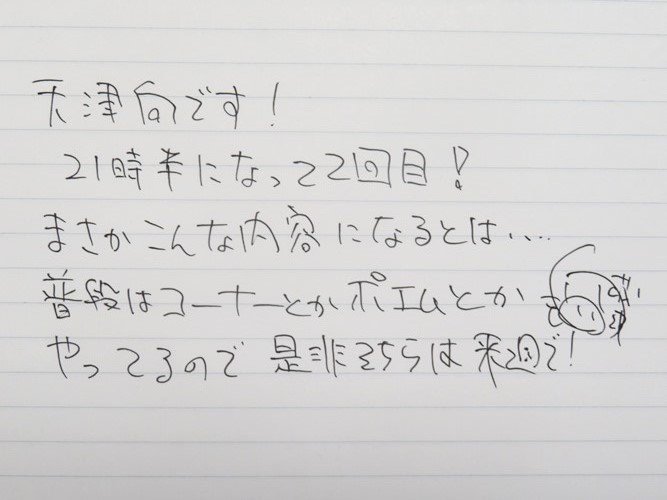 天津向です!
21時半になって2回目!
まさかこんな内容になるとは....
普段はコーナーとかポエムとか
やってるので是非そちらは来週で!